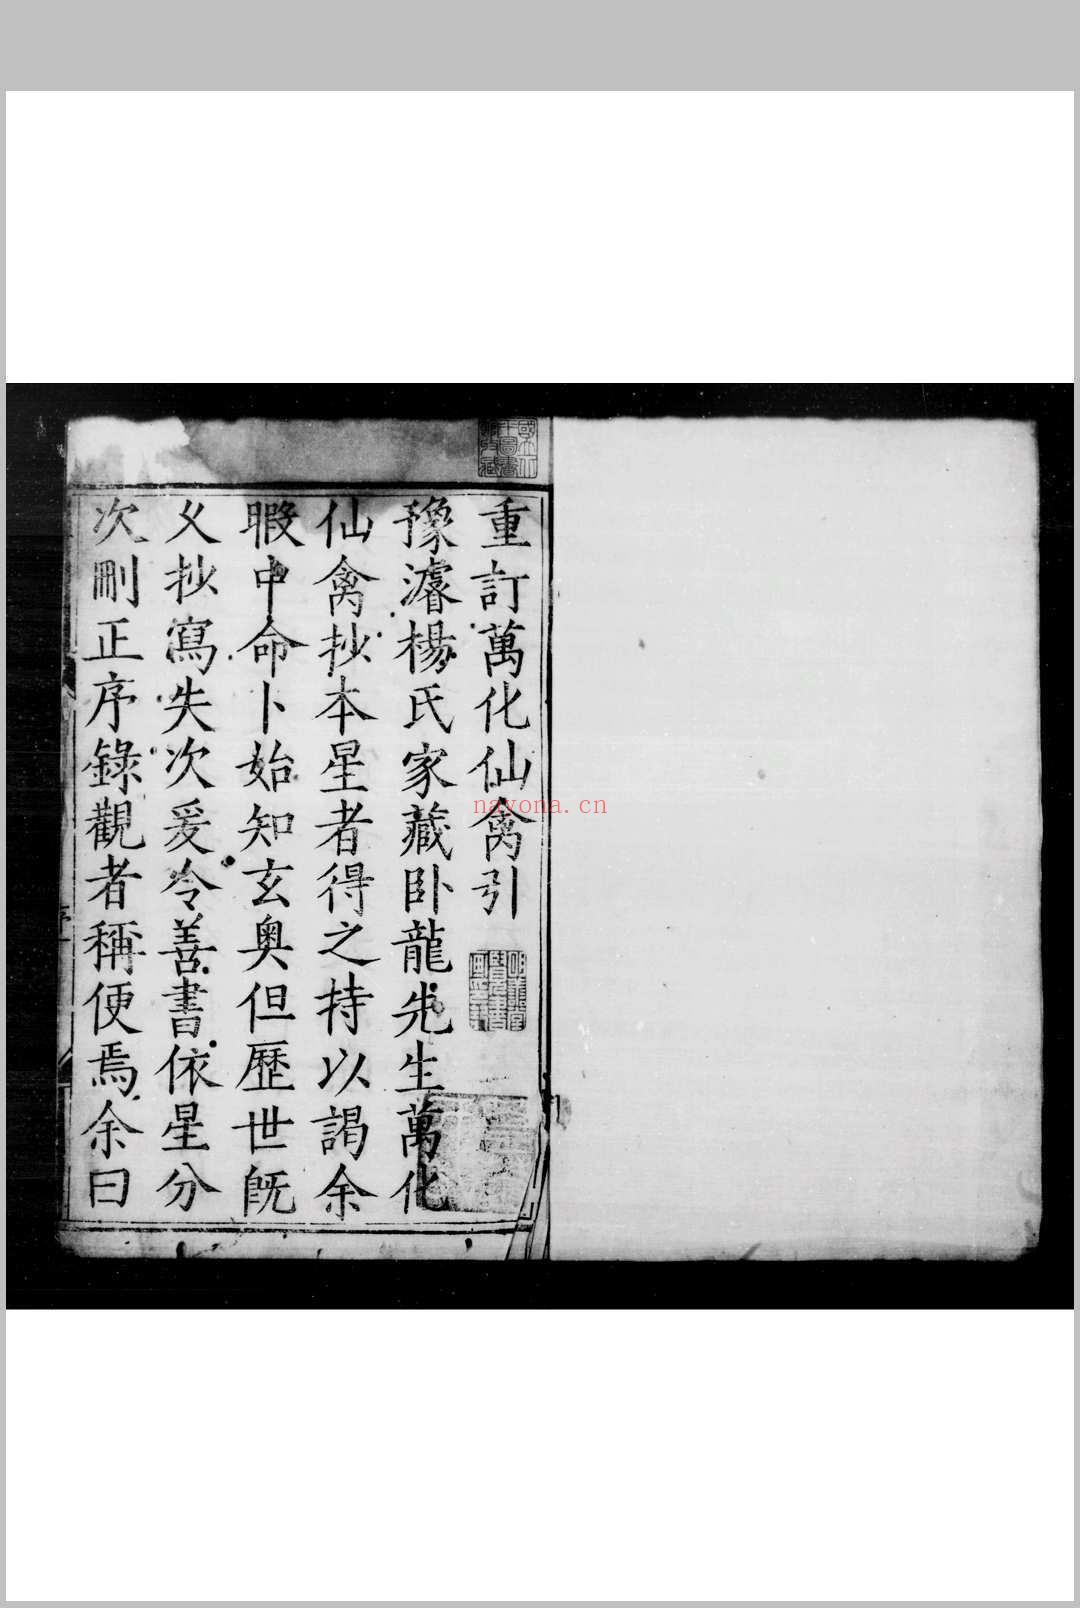 重訂萬化仙禽引
豫濬楊氏家藏卧龍先生萬化
仙禽抄本星者得之持以謁余
暇中命卜始知玄奥但歷世旣
乆抄寫失次爰令善書依星分
次刪正序錄觀者稱便焉余曰
nayona.cn